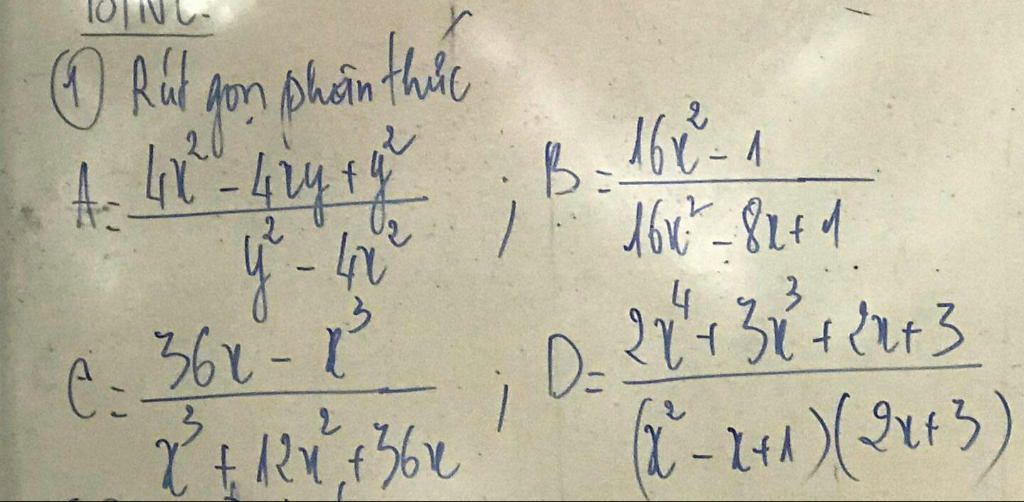 ① Rút gọn phân thức
A = \frac{4x^2 - 4xy + y^2}{y^2 - 4x^2} ; B = \frac{16x^2 - 1}{16x^2 - 8x + 1}
C = \frac{36x - x^3}{x^3 + 12x^2 + 36x} ; D = \frac{2x^4 + 3x^3 + 2x + 3}{(x^2 - x + 1)(2x + 3)}